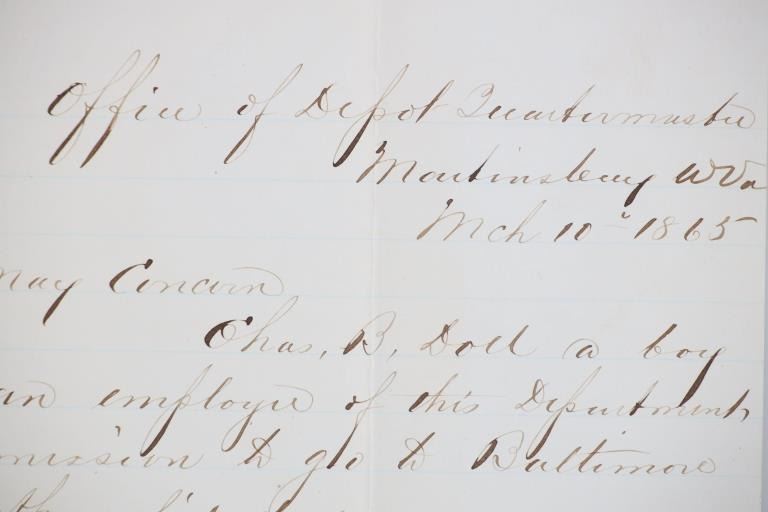 Office of Depot Quartermaster
Martinsburg W Va
Mch 10" 1865
may Concern
Chas, B, Doll a boy
an employe of this Department,
mission to go to Baltimore